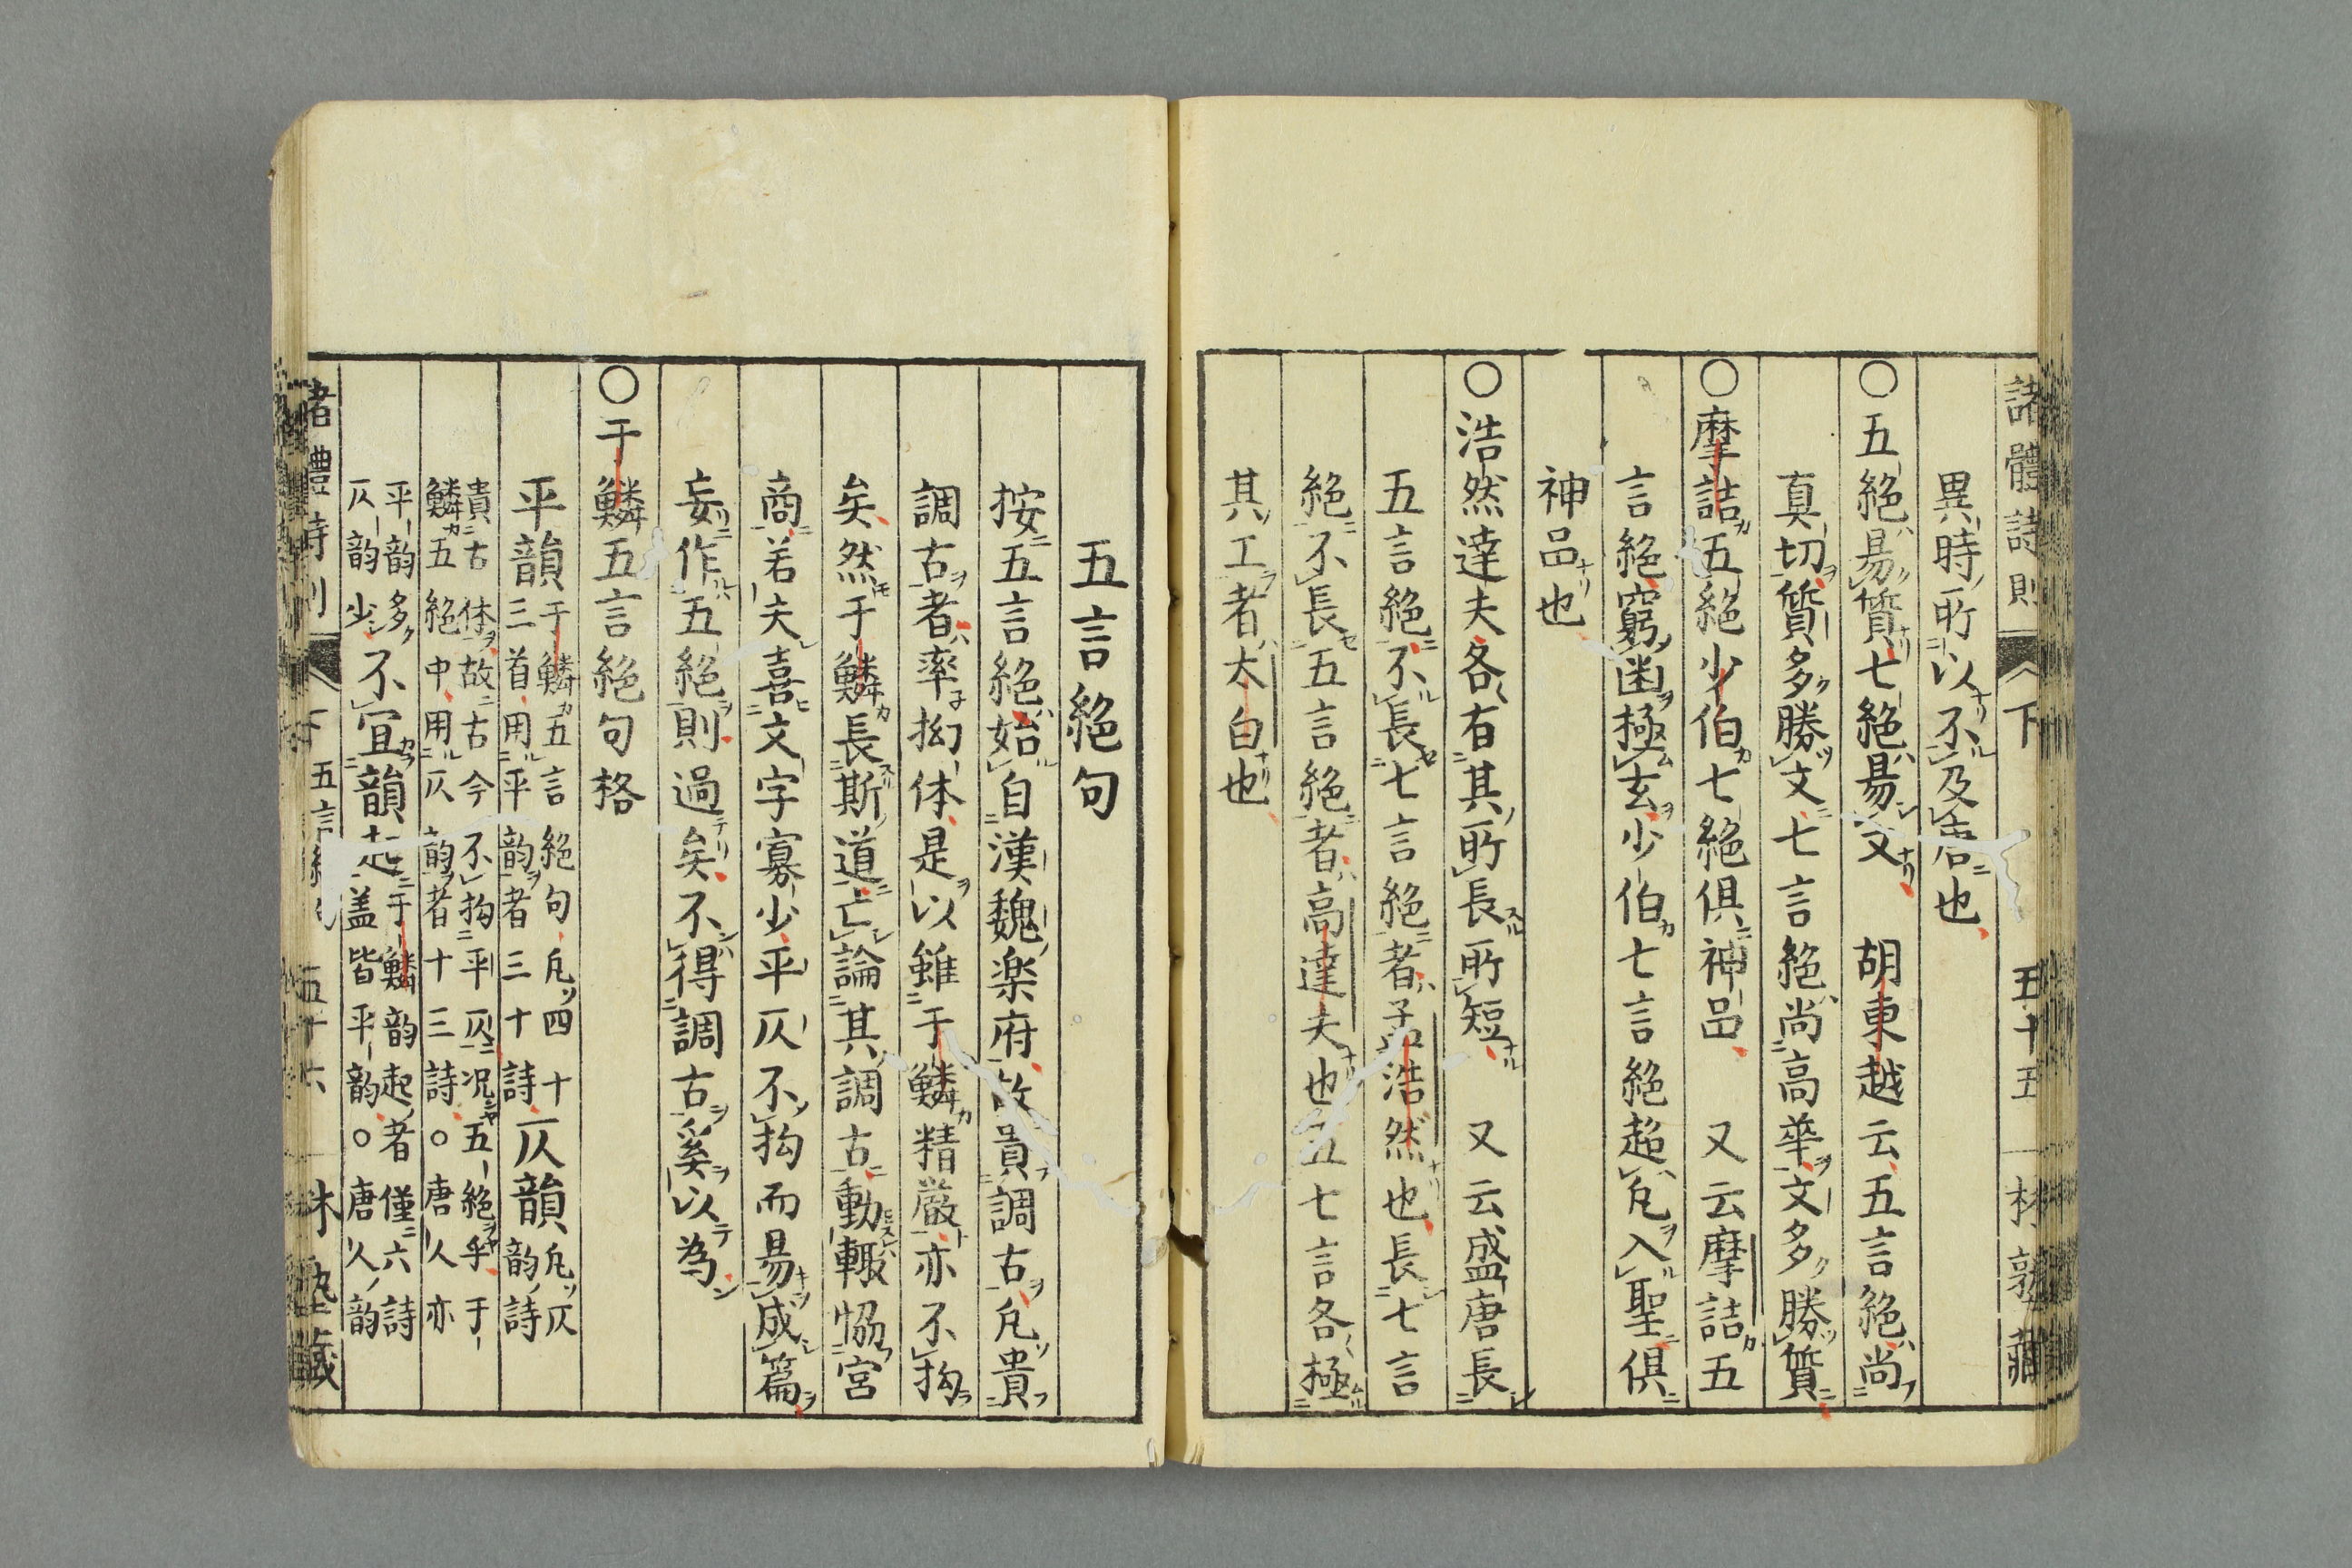 諸體詩則 下 五十五 林塾藏
異時所以不及唐也
○五絶易質七絶易文 胡東越云五言絶尚
真切質多勝文七言絶尚高華文多勝質
○摩詰五絶少伯七絶俱神品 又云摩詰五
言絶窮幽極玄少伯七言絶超凢入聖俱
神品也
○浩然達夫各有其所長所短 又云盛唐長
五言絶不長七言絶者孟浩然也長七言
絶不長五言絶者高達夫也五七言各極
其工者太白也
五言絶句
按五言絶始自漢魏楽府故貴調古凢貴
調古者率拗体是以雖于鱗精厳亦不拘
矣然于鱗長斯道亡論其調古動輙恊宮
商若夫喜文字寡少平仄不拘而易成篇
妄作五絶則過矣不得調古奚以為
○于鱗五言絶句格
平韻于鱗五言絶句凢四十三首用平韵者三十詩仄韻凢仄韵詩
貴古体故古今不拘平仄况五絶乎于
鱗五絶中用仄韵者十三詩○唐人亦
平韵多仄韵少不宜韻起于鱗韵起者僅六詩
盖皆平韵○唐人韵
諸體詩則 下 五言絶句 五十六 林塾藏